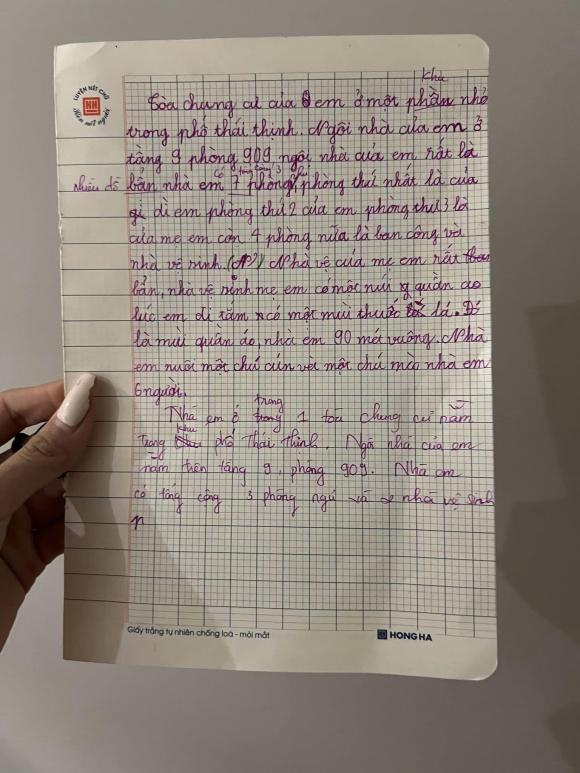 LUYỆN NÉT CHỮ
HH
Rèn nết người
khu
Tòa chung cư của em ở một phần nhỏ
trong phố thái thịnh. Ngôi nhà của em ở
tầng 9 phòng 909 ngôi nhà của em rất là
có tổng
nhiều đồ bẩn nhà em 7 phòng, phòng thứ nhất là của
dì em phòng thứ 2 của em phòng thứ 3 là
của mẹ em còn 4 phòng nữa là ban công và
nhà vệ sinh (N) Nhà vệ của mẹ em rất
bẩn, nhà vệ sinh mẹ em có một núi quần áo
lúc em đi tắm có một mùi thuốc lá. Đó
là mùi quần áo, nhà em 90 mét vuông. Nhà
em nuôi một chú cún và một chú mèo nhà em
6 người.
trong
Nhà em ở trong 1 tòa chung cư nằm
khu
trong phố Thái Thịnh. Ngôi nhà của em
nằm trên tầng 9, phòng 909. Nhà em
có tổng cộng 3 phòng ngủ và 2 nhà vệ sinh
n
Giấy trắng tự nhiên chống loá - mỏi mắt
HONG HA